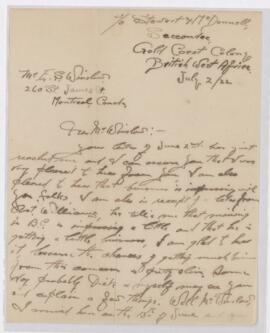 c/o Stewart & McDonnell,
Seccondee
Gold Coast Colony
British West Africa
July 2/22
Mr. E. B. Winslow
260 St James St
Montreal, Canada
Dear Mr Winslow:-
Your letter of June 2nd has just
reached me and I can assure you that I was
very pleased to hear from you. I am also
pleased to hear that business is improving with
you folks. I am also in receipt of a letter from
Bert Williams, he tells me that mining
in B.C. is improving a little, and that he is
getting a little business, I am glad to hear
it because the chances of getting much biz
from this concern is pretty slim. Some
day probably Dick & myself may see you
and explain a few things. Well Mr Winslow
I arrived here on the of June and